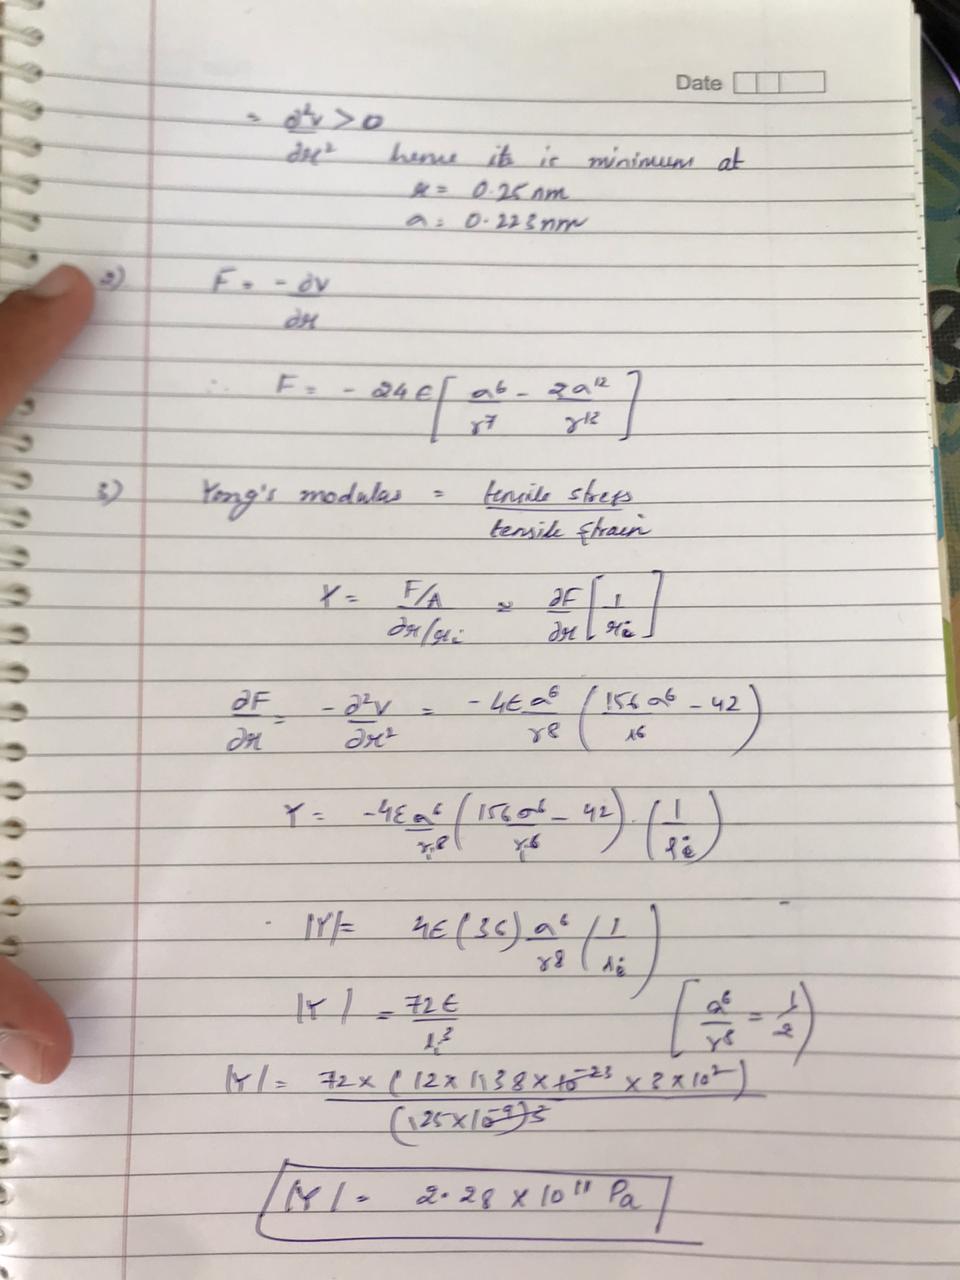 Date
= ∂²v/∂x² > 0
hence it is minimum at
x = 0.25 nm
a = 0.223 nm
2) F = -∂v/∂x
∴ F = -24ϵ[a⁶/r⁷ - 2a¹²/r¹³]
3) Yong's modulas = tensile stress/tensile strain
Y = F/A / ∂x/xᵢ ≈ ∂F/∂x [1/xᵢ]
∂F/∂x = -∂²v/∂x² = -4ϵa⁶/r⁸ (156a⁶/r⁶ - 42)
Y = -4ϵa⁶/r⁸ (156a⁶/r⁶ - 42) · (1/rᵢ)
|Y| = 4ϵ(36) a⁶/r⁸ (1/rᵢ)
|Y| = 72ϵ/rᵢ³ [a⁶/r⁸ = 1/2)
|Y| = 72 × (12 × 1.38 × 10⁻²³ × 3 × 10²)/(.25 × 10⁻⁹)³
|Y| = 2.28 × 10¹¹ Pa